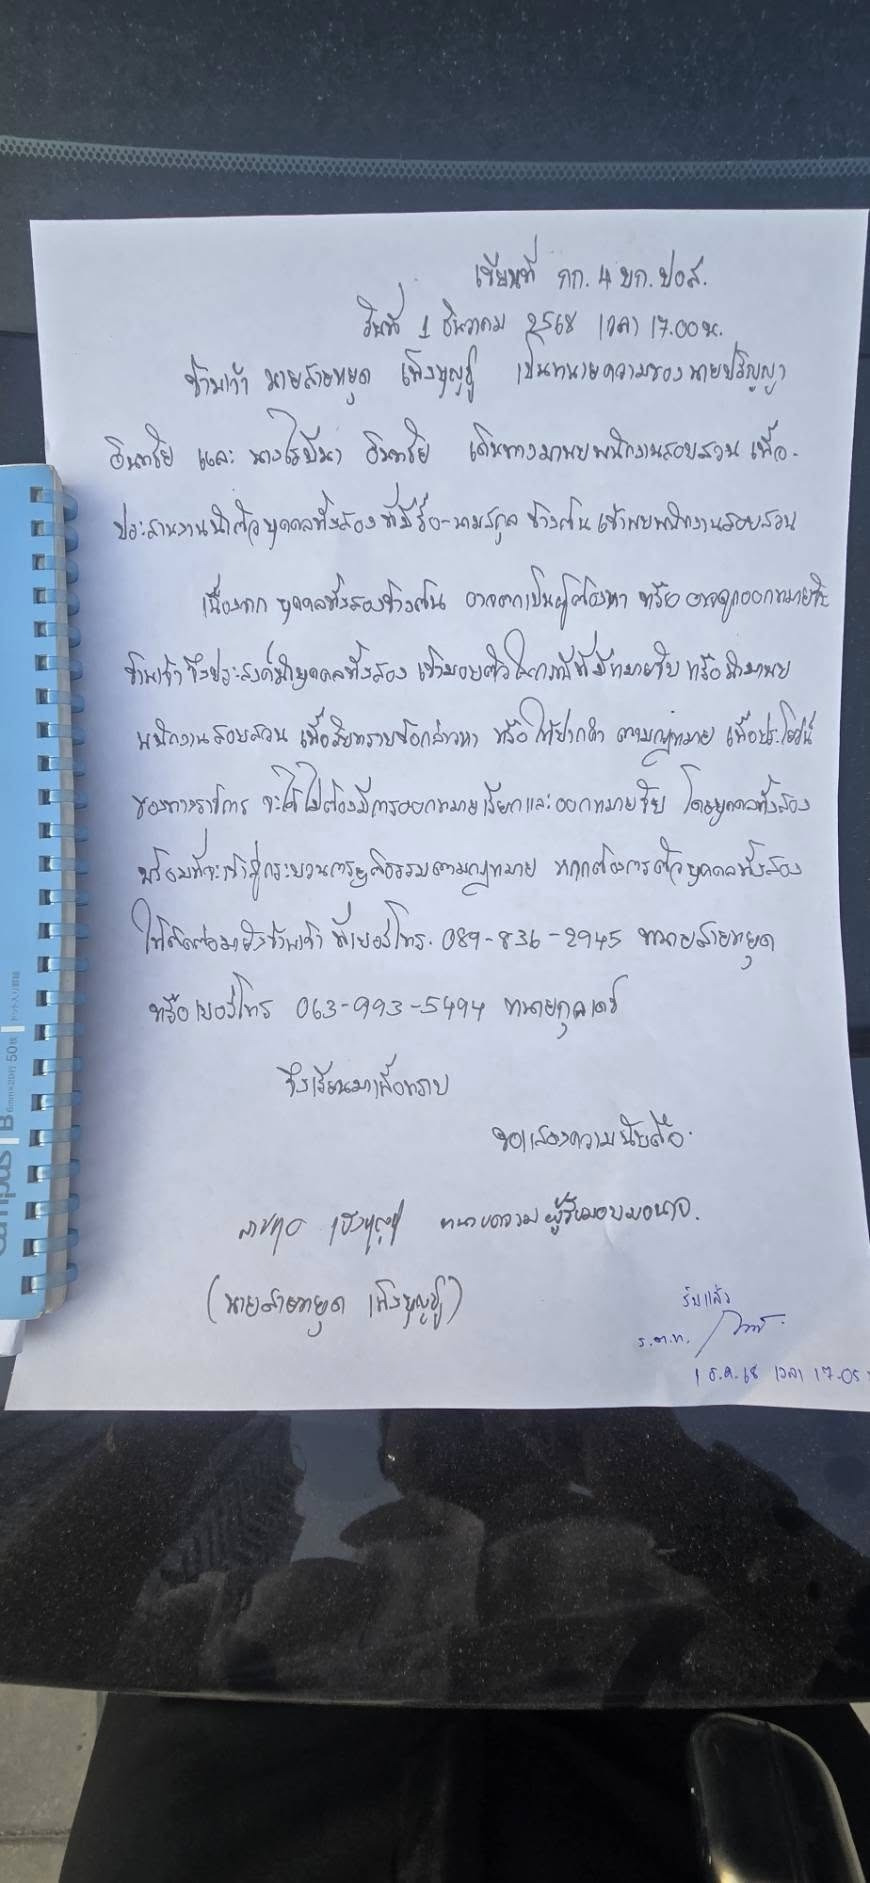 เขียนที่ กก. 4 บก. ปอศ.
วันที่ 1 ธันวาคม 2568 เวลา 17.00 น.
ข้าพเจ้า นายสายหยุด เพ็งบุญชู เป็นทนายความของ นายปริญญา
อินทรีย์ และ เดินทางมาพบพนักงานสอบสวน เพื่อ-
ประสานงานนำตัวบุคคลทั้งสอง ที่มีชื่อ-นามสกุล ข้างต้น เข้าพบพนักงานสอบสวน
เนื่องจาก บุคคลทั้งสองข้างต้น อาจตกเป็นผู้ต้องหา หรือ อาจถูกออกหมายจับ
ข้าพเจ้า จึงประสงค์นำบุคคลทั้งสอง เข้ามอบตัวในกรณีที่มีหมายจับ หรือนำมาพบ
พนักงานสอบสวน เพื่อรับทราบข้อกล่าวหา หรือ ให้ปากคำ ตามกฎหมาย เพื่อประโยชน์
ของทางราชการ จะได้ไม่ต้องมีการออกหมายเรียกและออกหมายจับ โดยบุคคลทั้งสอง
พร้อมที่จะเข้าสู่กระบวนการยุติธรรมตามกฎหมาย หากต้องการตัวบุคคลทั้งสอง
ให้ติดต่อมายังข้าพเจ้า ที่เบอร์โทร. 089-836-2945 ทนายสายหยุด
หรือ เบอร์โทร 063-993-5494 ทนายกุลเดช
จึงเรียนมาเพื่อทราบ
ขอแสดงความนับถือ
สายหยุด เพ็งบุญชู ทนายความ ผู้รับมอบอำนาจ.
(นายสายหยุด เพ็งบุญชู)
รับแล้ว
ร.ต.ท.
1 ธ.ค. 68 เวลา 17.05
campus B 6mm×20行 50枚 ドット入り罫線